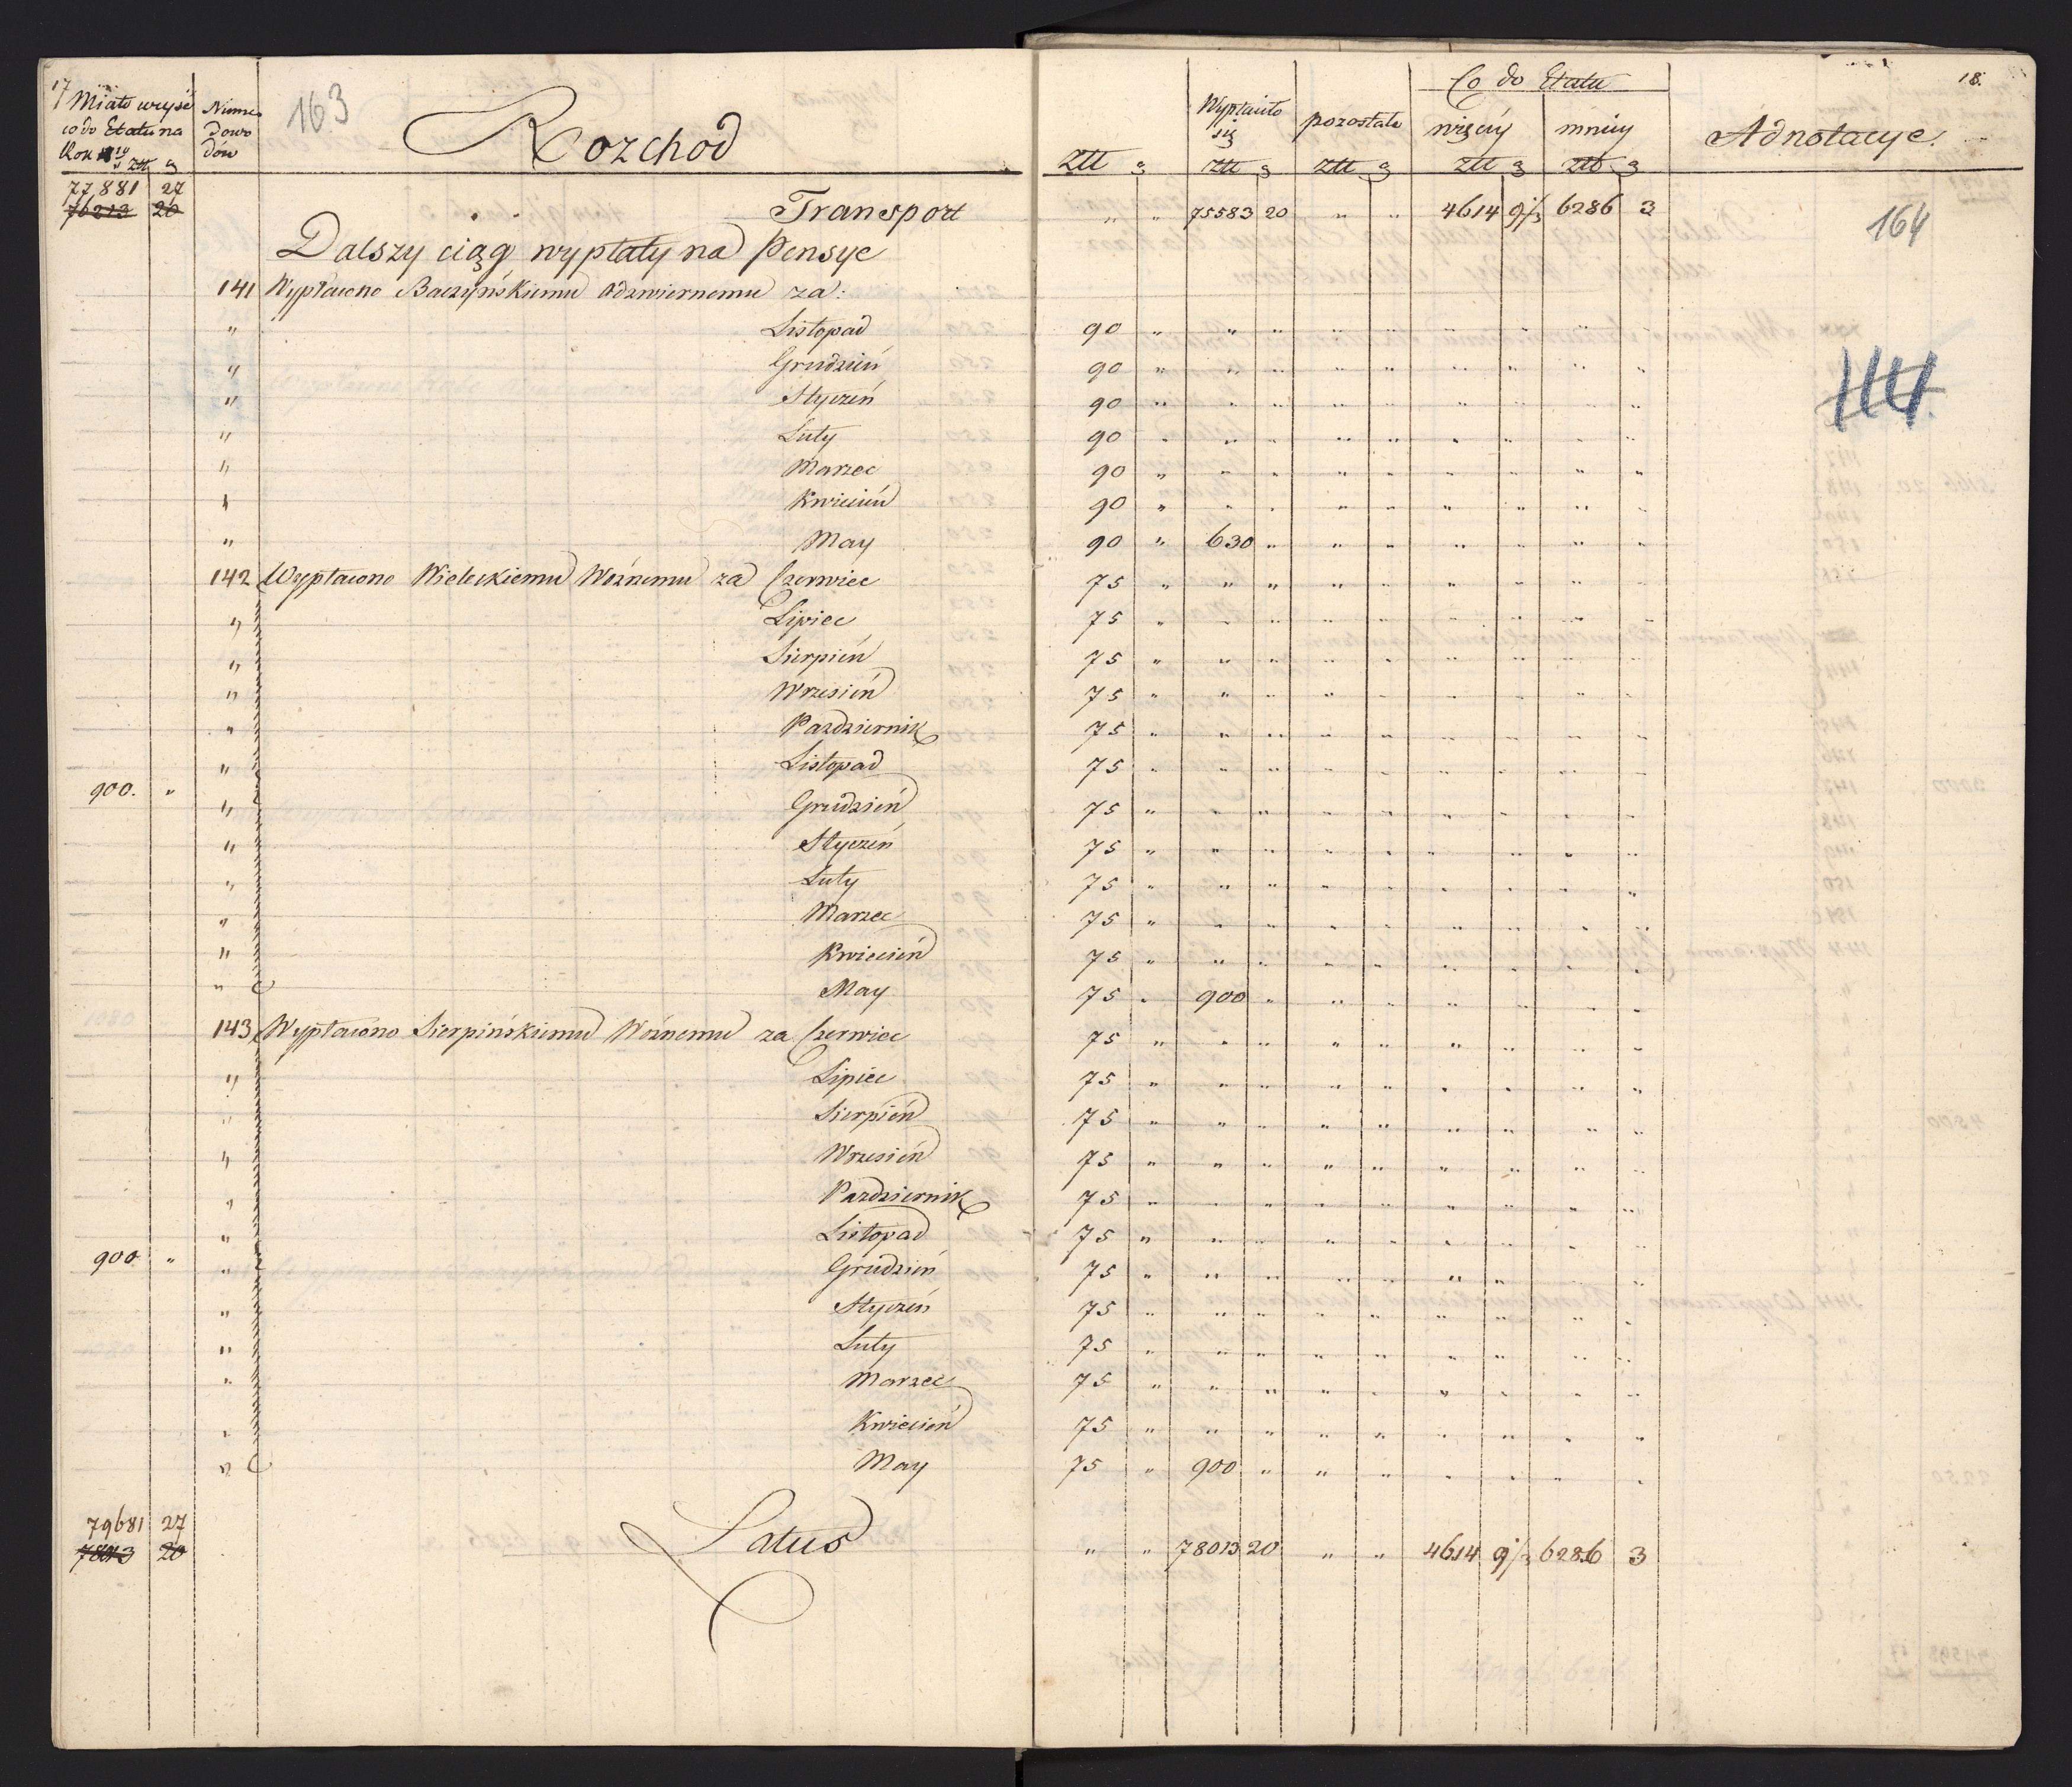 17 163
Miało wyiść Numera
co do Etatu na dowo
Rok 18 19/ dów
Złł g
Rozchod
77881 27
76213 20 Transport
Dalszy ciąg wypłaty na Pensye
141 Wypłacono Baczyńskiemu Odzwiernemu za:
" Listopad
" Grudzień
" Styczeń
" Luty
" Marzec
" Kwiecień
" May
142 Wypłacono Wieleckiemu Woźnemu za Czerwiec
" Lipiec
" Sierpień
" Wrzesień
" Pazdziernik
" Listopad
900. " " Grudzień
" Styczeń
" Luty
" Marzec
" Kwiecień
" May
143 Wypłacono Sierpińskiemu Woźnemu za Czerwiec
" Lipiec
" Sierpień
" Wrzesień
" Pazdziernik
" Listopad
900 " " Grudzień
" Styczeń
" Luty
" Marzec
" Kwiecień
" May
79681 27
78013 20 Latus
18.
Co do Etatu
Wypłaciło się pozostało więcéy mniéy Adnotacye.
Złł g Złł g Złł g Złł g Złł g
" " 75583 20 " " 4614 9 1/3 6286 3
164
90 " " " " " " " " "
90 " " " " " " " " "
90 " " " " " " " " "
90 " " " " " " " " "
90 " " " " " " " " "
90 " " " " " " " " "
90 " 630 " " " " " " "
75 " " " " " " " " "
75 " " " " " " " " "
75 " " " " " " " " "
75 " " " " " " " " "
75 " " " " " " " " "
75 " " " " " " " " "
75 " " " " " " " " "
75 " " " " " " " " "
75 " " " " " " " " "
75 " " " " " " " " "
75 " " " " " " " " "
75 " 900 " " " " " " "
75 " " " " " " " " "
75 " " " " " " " " "
75 " " " " " " " " "
75 " " " " " " " " "
75 " " " " " " " " "
75 " " " " " " " " "
75 " " " " " " " " "
75 " " " " " " " " "
75 " " " " " " " " "
75 " " " " " " " " "
75 " " " " " " " " "
75 " 900 " " " " " " "
" " 78013 20 " " 4614 9 1/3 6286 3